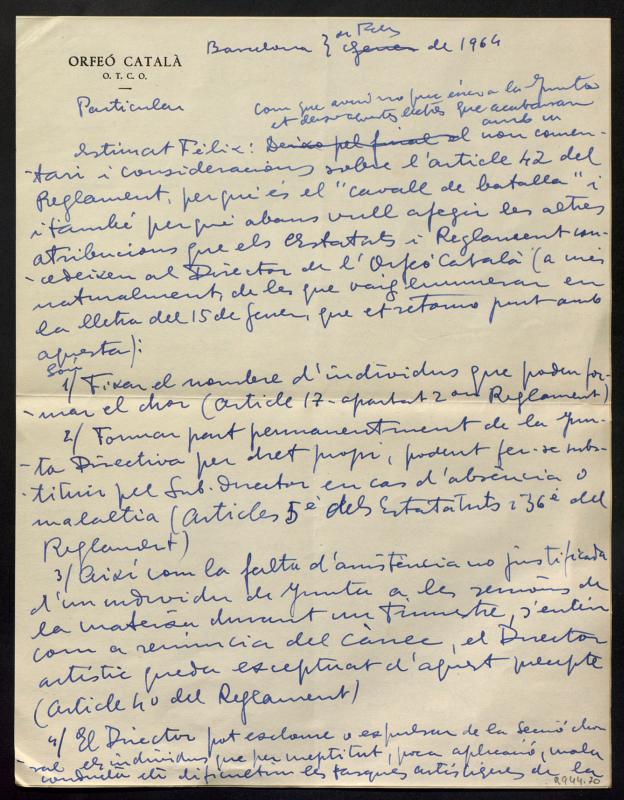 ORFEÓ CATALÀ
O. T. C. O.
Barcelona 3 de Febr
gener de 1964
Particular
Com que avui no puc anar a la Junta
et deixo aquestes lletres que acabaran
amb un
Estimat Fèlix: Deixo pel final el non comen-
tari i consideracions sobre l'article 42 del
Reglament, perquè és el "cavall de batalla" i
i també perquè abans vull afegir les altres
atribucions que els Estatuts i Reglament con-
cedeixen al Director de l'Orfeó Català (a més
naturalment, de les que vaig enumerar en
la lletra del 15 de Gener, que et retorno junt amb
aquesta):
Son
1/ Fixar el nombre d'individus que poden for-
mar el chor (article 17 - apartat 2 Reglament)
2/ Formar part permanentment de la Jun-
ta Directiva per dret propi, podent fer-se subs-
tituir pel Sub-director en cas d'absència o
malaltia (Articles 5è dels Estatuts i 36è del
Reglament)
3/ Així com la falta d'assistència no justificada
d'un individu de Junta a les sessions de
la mateixa durant un Trimestre, s'entén
com a renúncia del càrrec, el Director
artístic queda exceptuat d'aquest precepte
(article 40 del Reglament)
4/ El Director pot excloure o expulsar de la Secció cho-
ral els individus que per ineptitut, poca aplicació, mala
conducta etc dificultin les tasques artístiques de la
R944.70